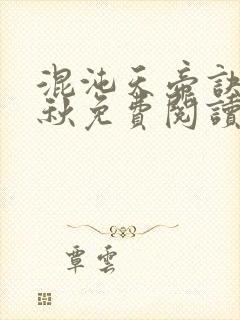 混沌天帝訣
秋免費閱讀
覃雲